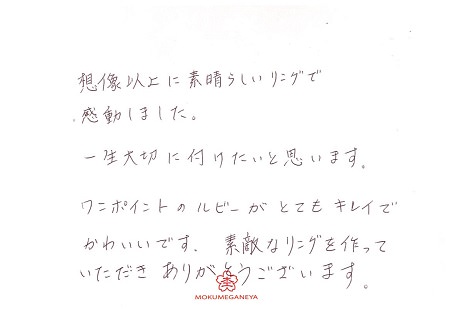 想像以上に素晴らしいリングで
感動しました。
一生大切に付けたいと思います。
ワンポイントのルビーがとてもキレイで
かわいいです。素敵なリングを作って
いただきありがとうございます。
MOKUMEGANEYA